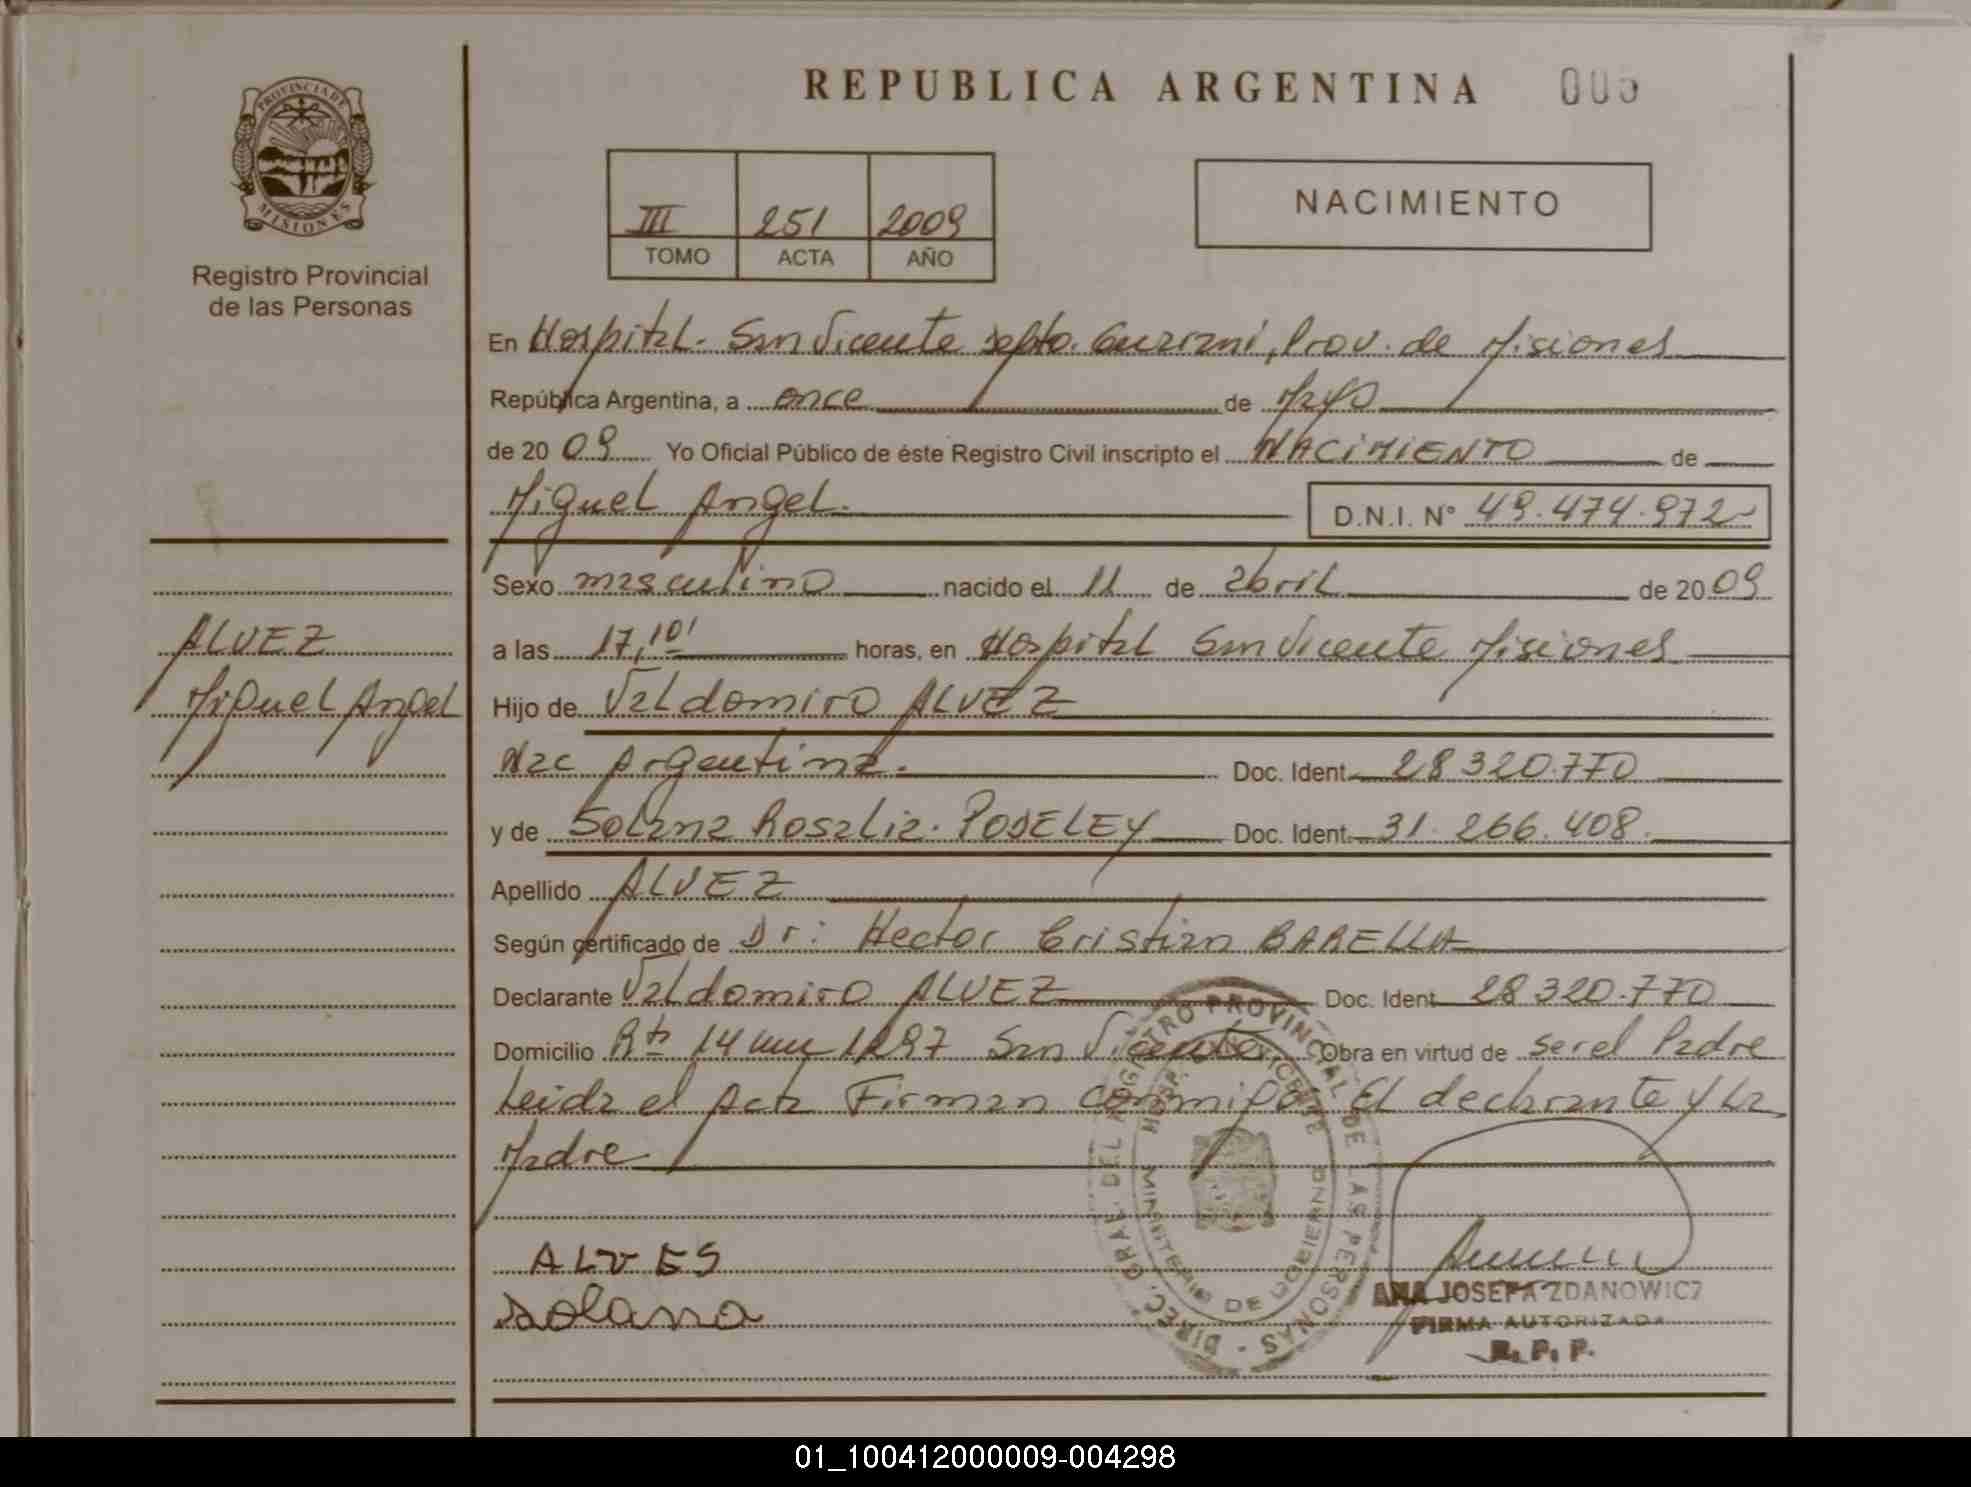 REPUBLICA ARGENTINA 005
PROVINCIA DE
MISIONES
Registro Provincial
de las Personas
III 251 2009
TOMO ACTA AÑO
NACIMIENTO
En Hospital. San Vicente Depto. Guarani, Prov. de Misiones
República Argentina, a once de Mayo
de 2009 Yo Oficial Público de éste Registro Civil inscripto el NACIMIENTO de
Miguel Angel. D.N.I. N° 49.474.972
Sexo masculino nacido el 11 de abril de 2009
a las 17,10' horas, en Hospital San Vicente Misiones
ALVEZ
Miguel Angel
Hijo de Valdomiro ALVEZ
Nac Argentina. Doc. Ident. 28320.770
y de Solana Rosalia. POSELEY Doc. Ident. 31.266.408.
Apellido ALVEZ
Según certificado de Dr: Hector Cristian BARELLA
Declarante Valdomiro ALVEZ Doc. Ident. 28320.770
Domicilio Rta 14 1297 San Vicente. Obra en virtud de ser el Padre
Leida el Acta Firman conmigo. El declarante y La
Madre
ALVES
solana
DIREC. GRAL. DEL REGISTRO PROVINCIAL DE LAS PERSONAS
HOSP. SAN VICENTE
MINISTERIO DE GOBIERNO
ANA JOSEFA ZDANOWICZ
FIRMA AUTORIZADA
R. P. P.
01_100412000009-004298